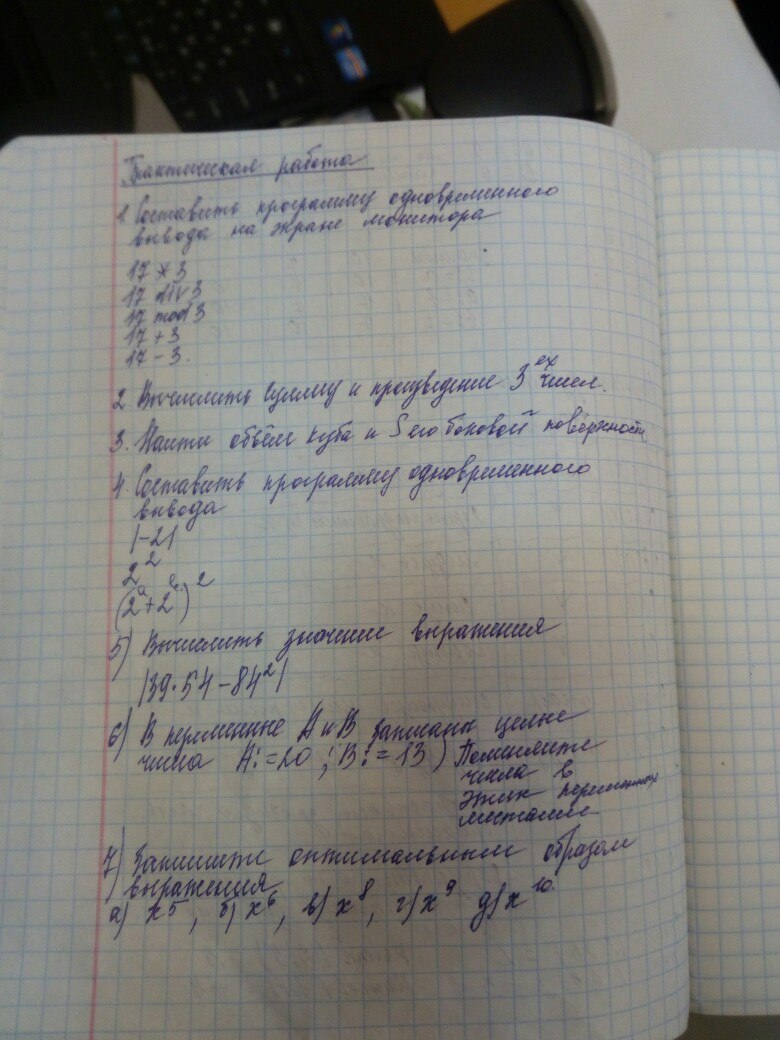 Практическая работа
1. Составить программу одновременного
вывода на экране монитора
17 * 3
17 div 3
17 mod 3
17 + 3
17 - 3.
2. Вычислить сумму и произведение 3ех чисел.
3. Найти объём куба и S его боковой поверхности
4. Составить программу одновременного
вывода
|-2|
2²
(2ᵃ+2ᵇ)²
5) Вычислить значение выражения
|39·54-84²|
6) В переменные А и В записаны целые
числа А:=20 ; В:=13) Поменяйте
числа в
этих переменных
местами
7) Запишите оптимальным образом
выражения
а) x⁵, б) x⁶, в) x⁸, г) x⁹ д) x¹⁰